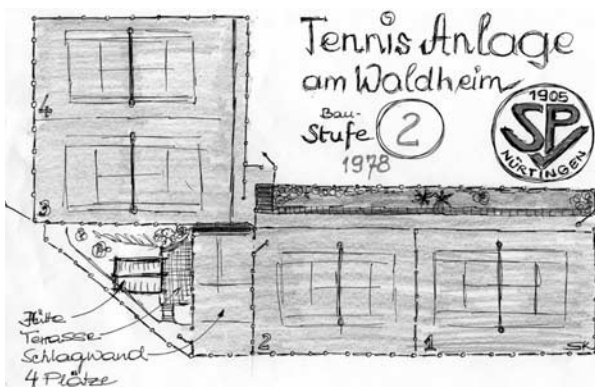 Tennis Anlage
am Waldheim
Bau-
Stufe 2
1978
1905
SPV
NÜRTINGEN
4
3
2
1
SK
Hütte
Terrasse
Schlagwand
4 Plätze